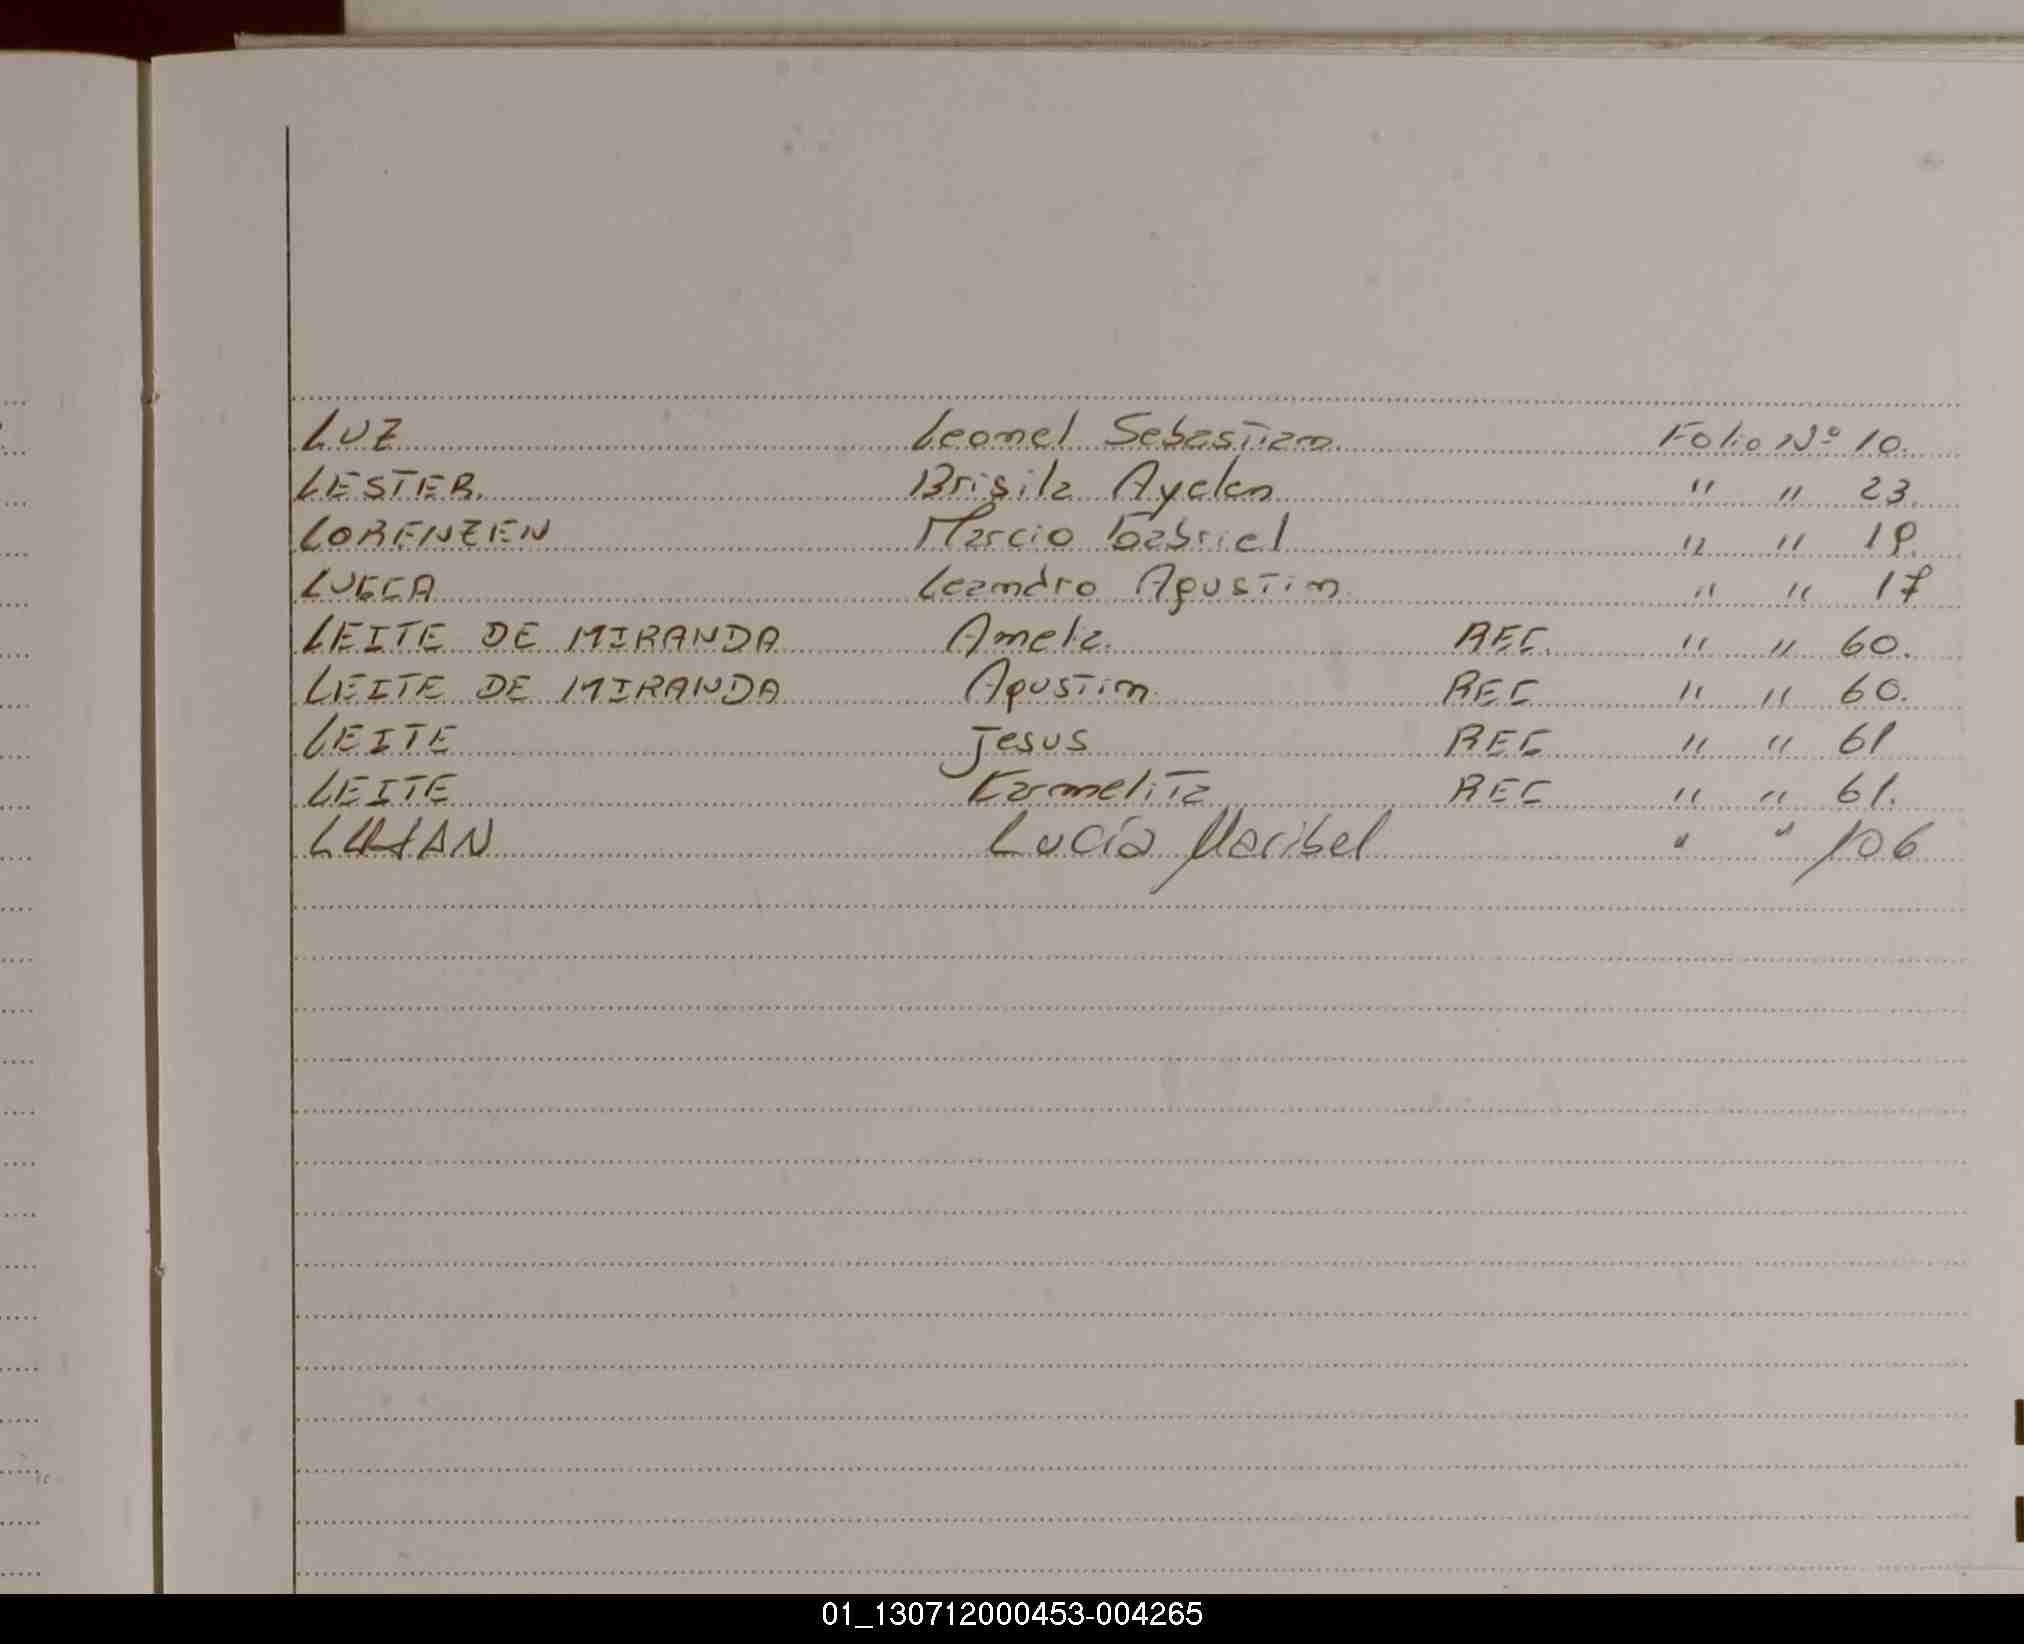 LUZ Leonel Sebastian Folio Nº 10.
LESTER. Brisila Ayelen " " 23.
LORENZEN Marcio Gabriel " " 19.
Leandro Agustin " " 17
LEITE DE MIRANDA Amelia. REC. " " 60.
LEITE DE MIRANDA Agustin. REC " " 60.
LEITE Jesus REC " " 61
LEITE Karmelita REC " " 61.
Lucía Maribel " " 106
01_130712000453-004265